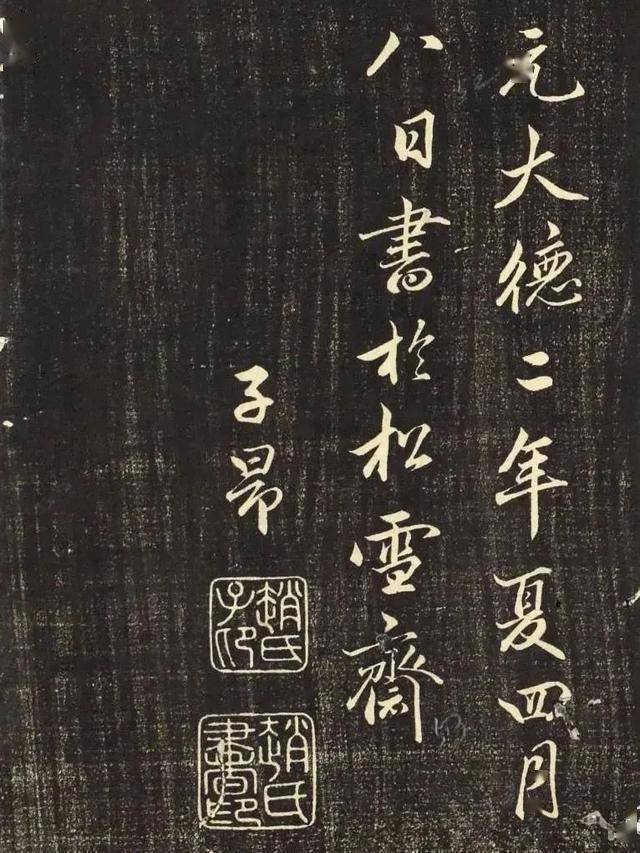 元大德二年夏四月
八日書於松雪齋
子昂
趙氏子印
趙氏書印